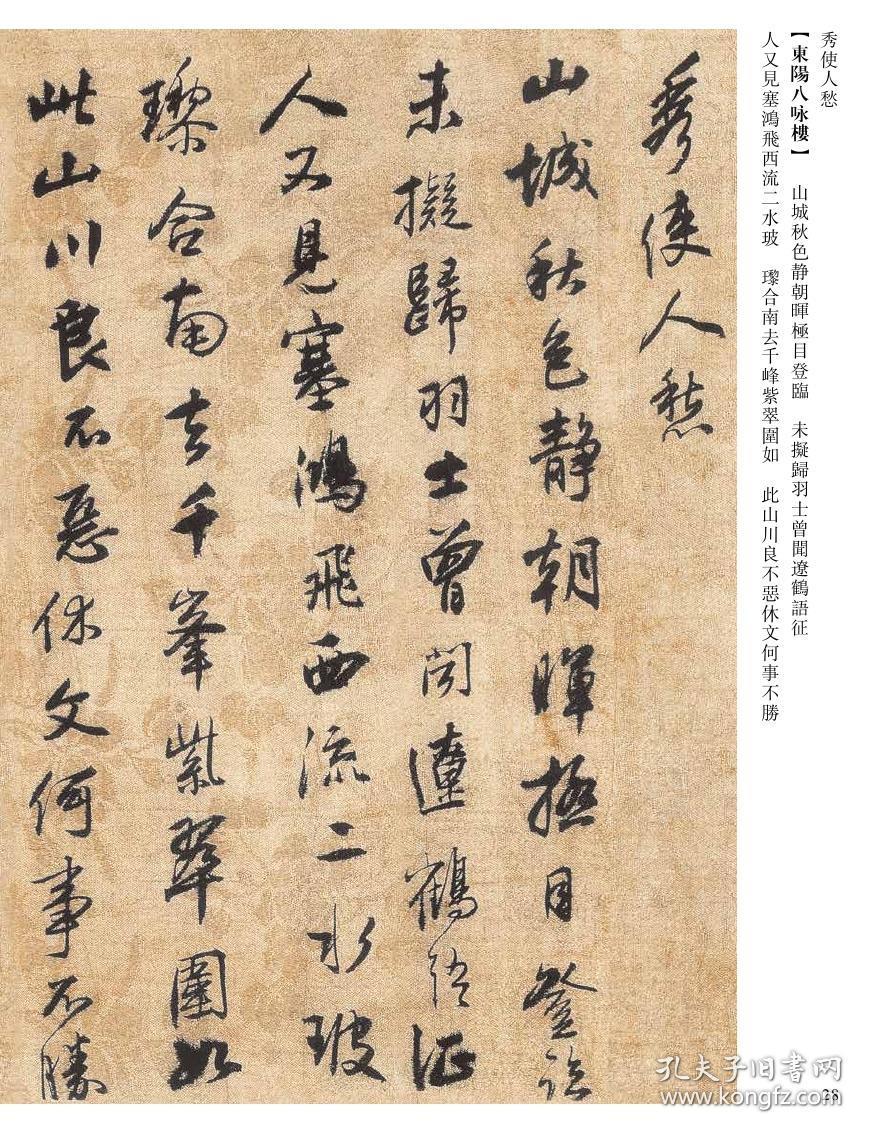 秀使人愁
【東陽八咏樓】 山城秋色静朝暉極目登臨 未擬歸羽士曾聞遼鶴語征
人又見塞鴻飛西流二水玻 瓈合南去千峰紫翠圍如 此山川良不惡休文何事不勝
秀使人愁
山城秋色静朝暉極目登臨
未擬歸羽士曾聞遼鶴語征
人又見塞鴻飛西流二水玻
瓈合南去千峯紫翠圍如
此山川良不惡休文何事不勝
28
孔夫子旧书网
www.kongfz.com